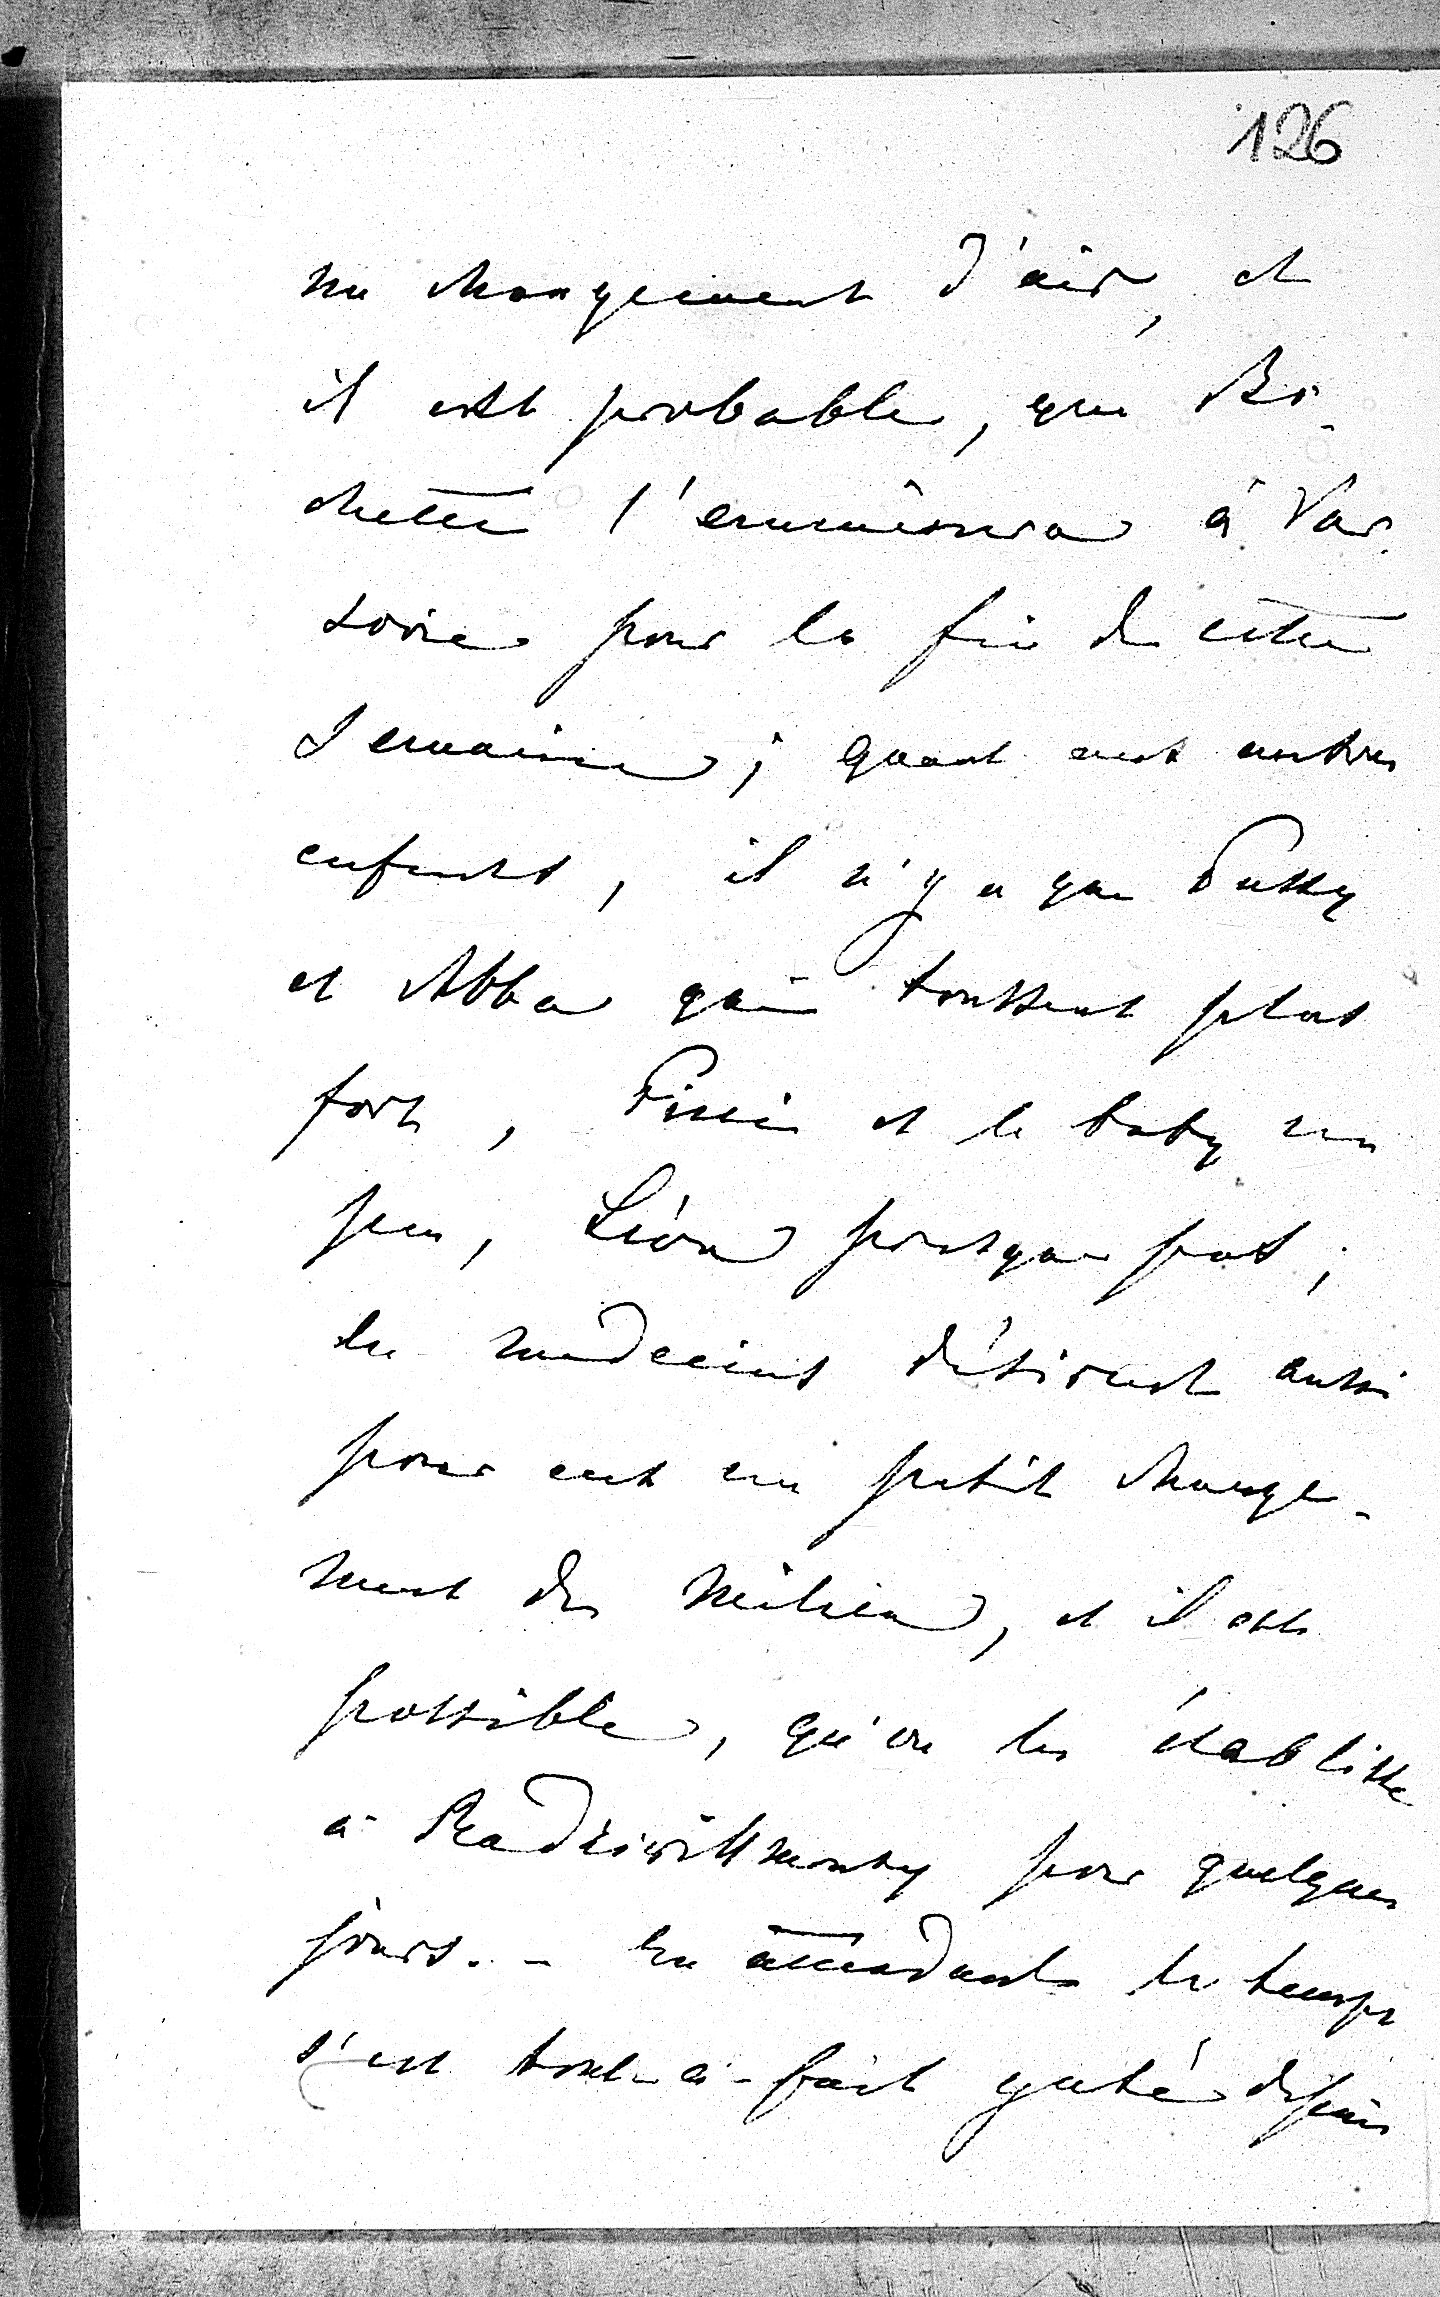 126
un changement d'air, et
il est probable, que Bi-
chette l'emmènera à Var-
sovie pour la fin de cette
Semaine ; quant aux autres
enfants, il n'y a que
et Abba qui toussent plus
fort, et le baby un
peu, Léon presque pas ;
les médecins désirent aussi
pour eux un petit change-
ment de milieu, et il est
possible, qu'on les établisse
à Radziwillmonty pour quelques
jours. - En attendant le temps
s'est tout-à-fait gaté depuis